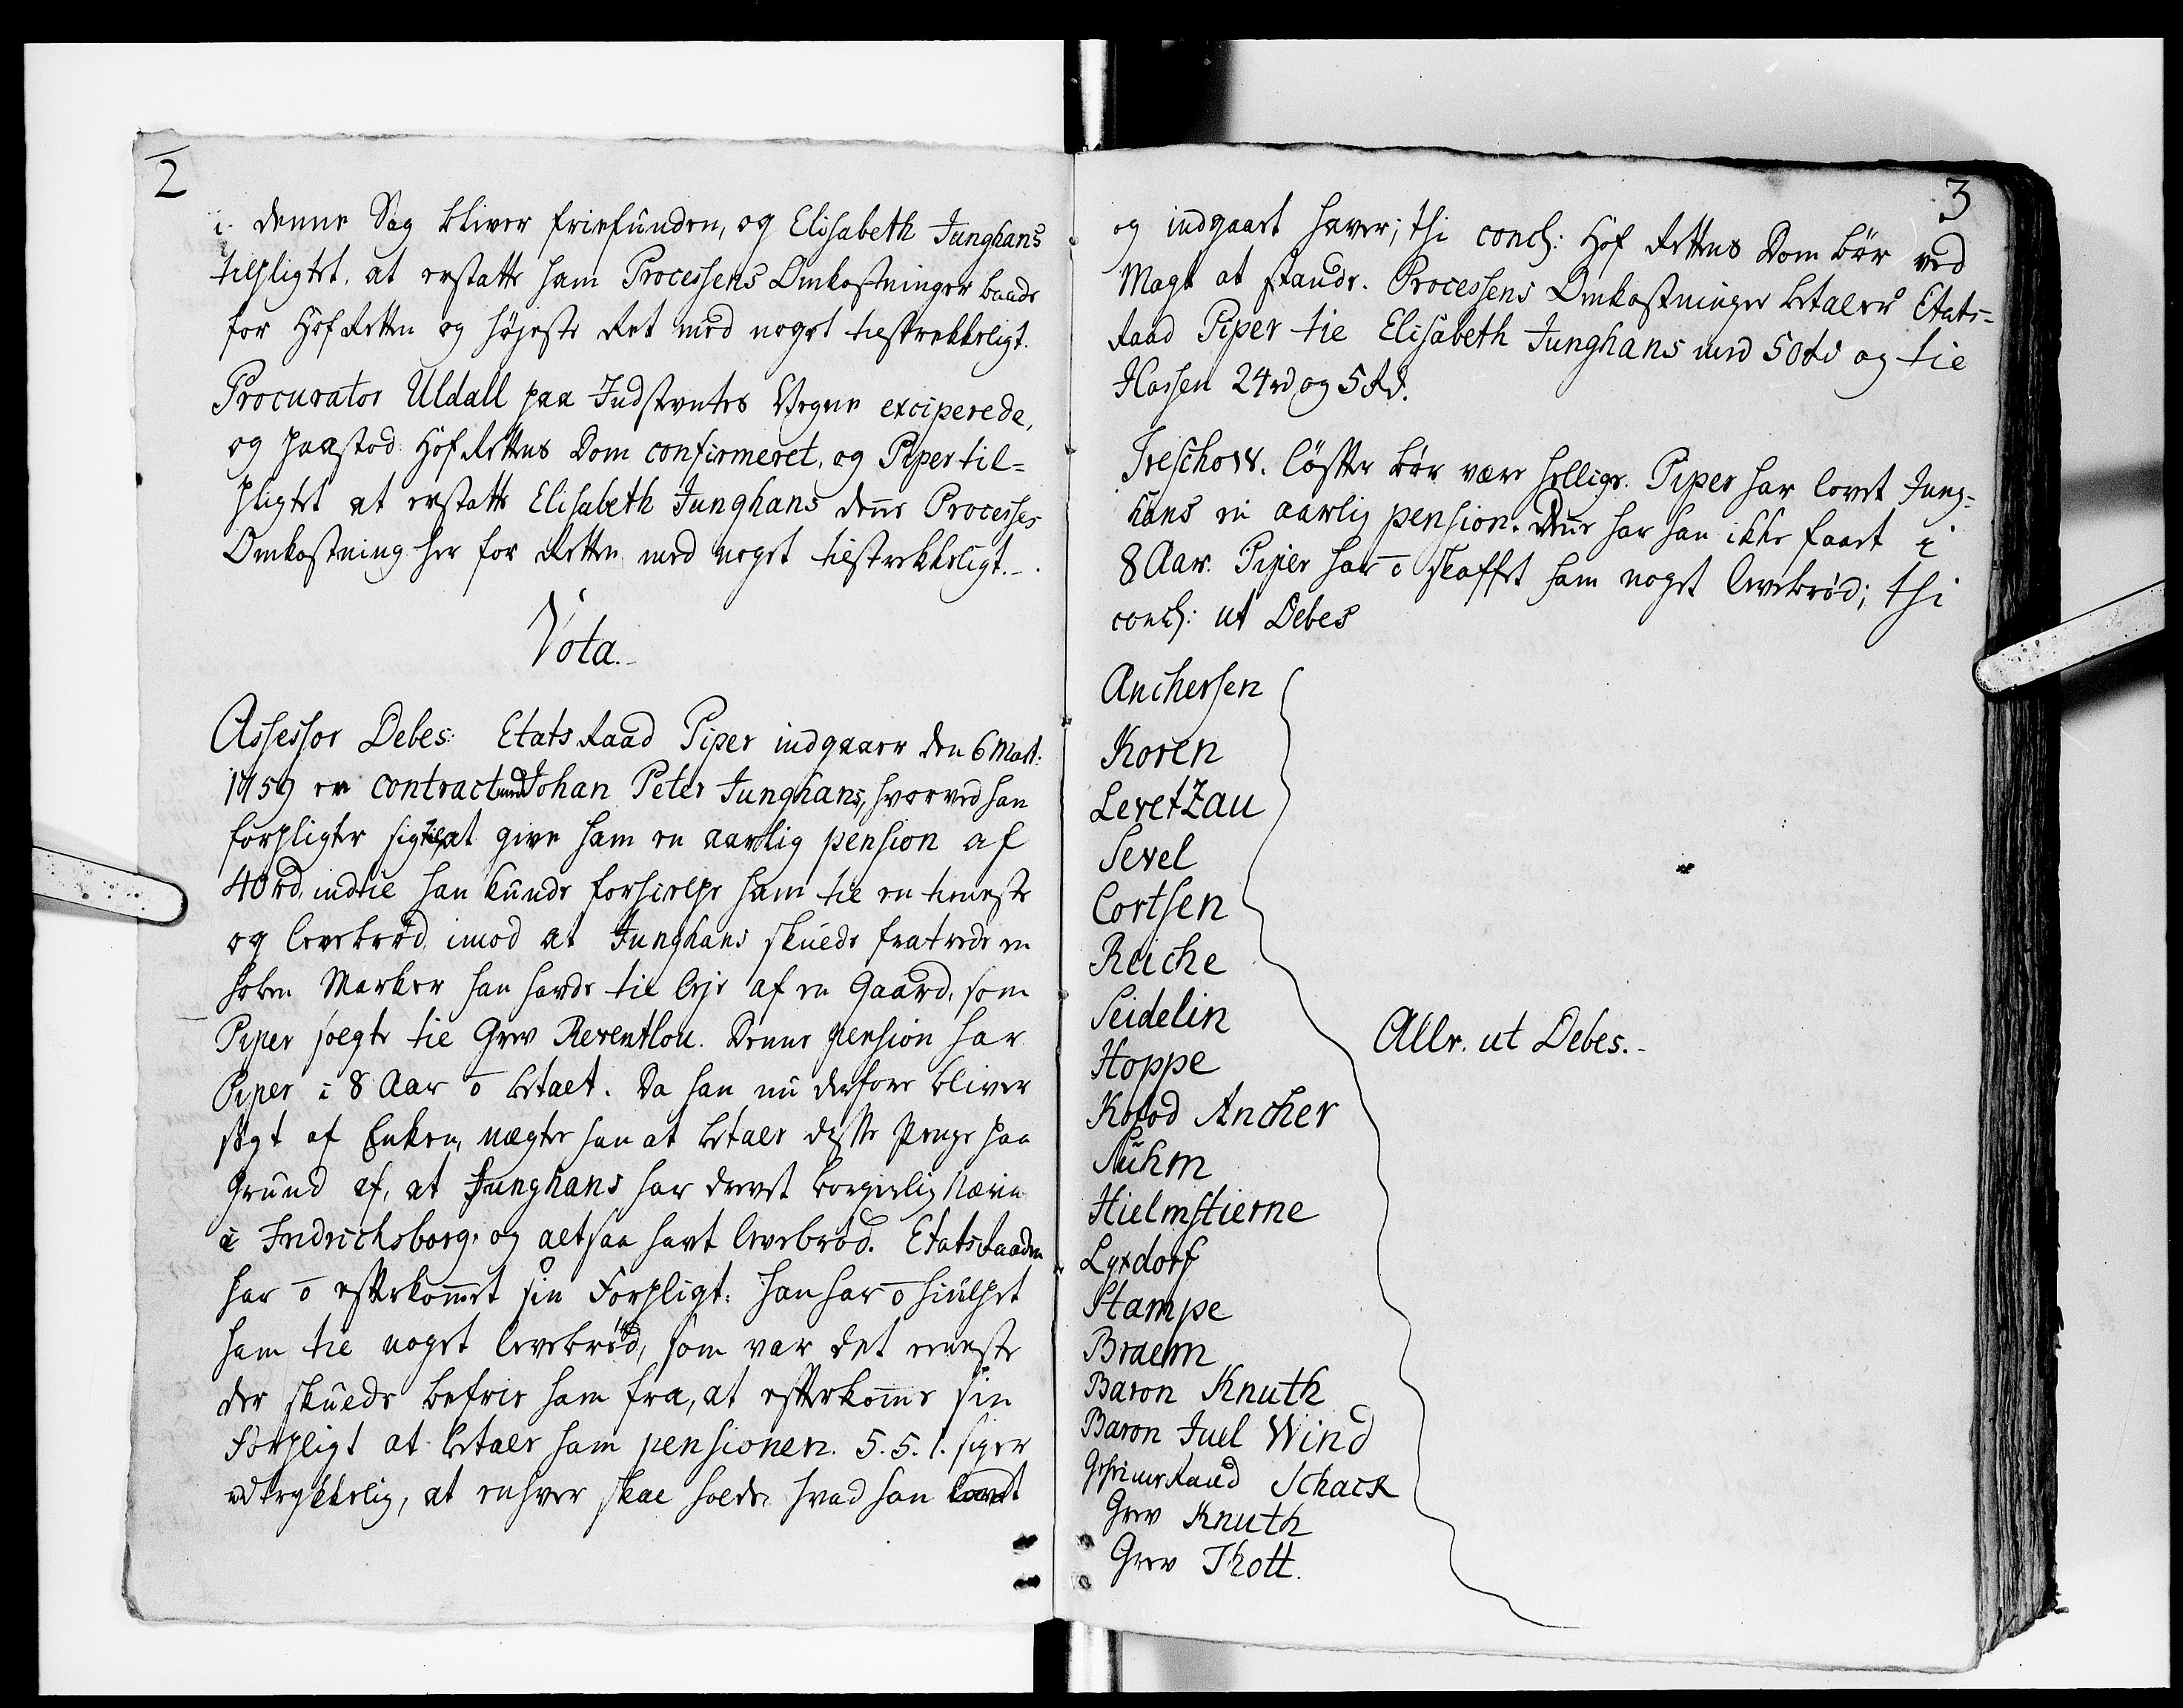 2
i denne Sag bliver friefunden, og Elisabeth Junghans
tilpligtet, at erstatte ham Processens Omkostninger baade
for Hof Retten og høyeste Ret med noget tilstrekkeligt.
Procurator Uldall paa Indstevntes Vegne exciperede,
og paastod Hof Rettens Dom confirmeret, og Piper til-
pligtet at erstatte Elisabeth Junghans denne Processes
Omkostning her for Retten med noget tilstrekkeligt.
Vota.
Assessor Debes: Etats Raad Piper indgaaer den 6 Mart:
1759 en contract med Johan Peter Junghans, hvorved han
forpligter sig til at give ham en aarlig pension af
40 rd. indtil han kunde forhielpe ham til en tieneste
og levebrød, imod at Junghans skulde fratræde en
Marker han havde til leje af en Gaard, som
Piper solgte til Grev Reventlou. Denne pension har
Piper i 8 Aar ō betalt. Da han nu derfore bliver
søgt af Enken, nægter han at betale disse Penge paa
Grund af, at Junghans har drevet borgerlig Næring
i Fridrichsborg, og altsaa havt levebrød. Etats Raaden
har ō efterkom̄et sin Forpligt: han har ō hiulpet
ham til noget levebrød, som var det eeneste
der skulde befrie ham fra, at efterkom̄e sin
Forpligt at betale ham pensionen. 5. 5. 1. siger
udtrykkelig, at enhver skal holde hvad han lovet
3
og indgaaet haver; thi concl: Hof Rettens Dom bør ved
Magt at stande. Processens Omkostninger betaler Etats-
Raad Piper til Elisabeth Junghans med 50 rd og til
Kassen 24 rd og 5 Rd.
Treschow. Løfter bør være hellige. Piper har lovet Jung-
hans en aarlig pension. Den̄e har han ikke faaet i
8 Aar. Piper har ō skaffet ham noget levebrød; thi
concl: ut Debes
Anchersen
Koren
Levetzau
Sevel
Cortsen
Reiche
Seidelin
Hoppe
Kofod Ancher
Suhm
Hielmstierne
Luxdorf
Stampe
Braem
Baron Knuth
Baron Juel Wind
Geheime Raad Schack
Grev Knuth
Grev Thott.
Alle. ut Debes.